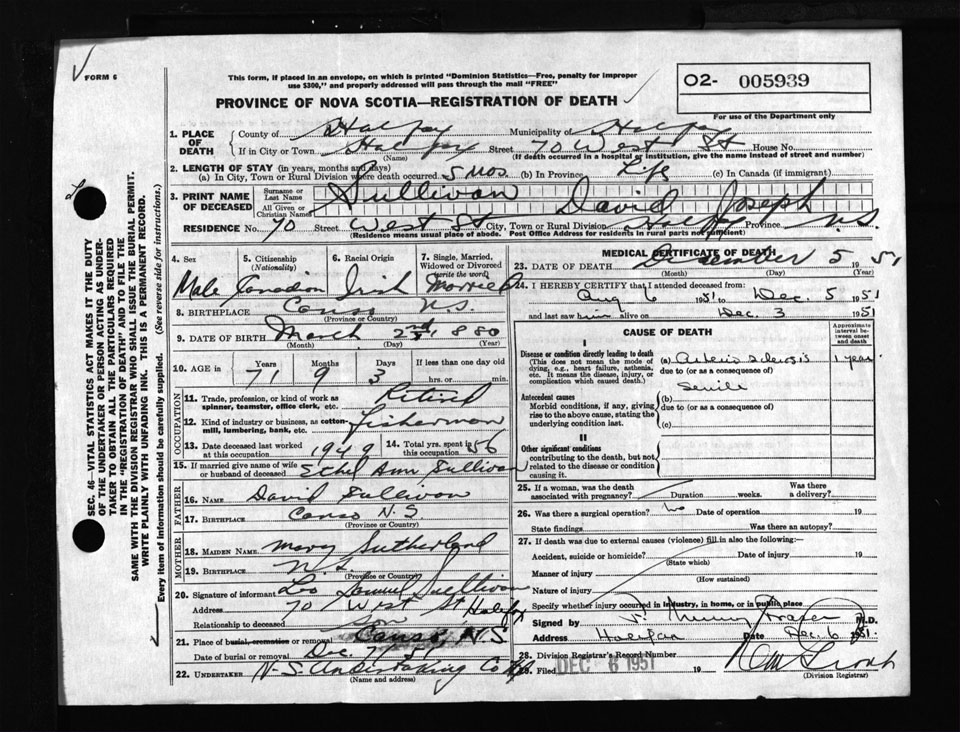 FORM 6
This form, if placed in an envelope, on which is printed "Dominion Statistics—Free, penalty for improper
use $300," and properly addressed will pass through the mail "FREE"
O2- 005939
PROVINCE OF NOVA SCOTIA—REGISTRATION OF DEATH
For use of the Department only
1. PLACE OF DEATH
County of Halifax Municipality of Halifax
If in City or Town Halifax Street 70 West St House No.
(Name) (If death occurred in a hospital or institution, give the name instead of street and number)
2. LENGTH OF STAY (in years, months and days)
(a) In City, Town or Rural Division where death occurred 5 mos. (b) In Province Life (c) In Canada (if immigrant)
3. PRINT NAME OF DECEASED
Surname or Last Name Sullivan
All Given or Christian Names David Joseph
RESIDENCE No. 70 Street West St City, Town or Rural Division Halifax Province N.S.
(Residence means usual place of abode. Post Office Address for residents in rural parts not sufficient)
4. Sex 5. Citizenship (Nationality) 6. Racial Origin 7. Single, Married, Widowed or Divorced (write the word)
Male Canadian Irish Married
8. BIRTHPLACE Canso N.S.
(Province or Country)
9. DATE OF BIRTH March 2nd 1880
(Month) (Day) (Year)
10. AGE in Years Months Days If less than one day old
71 9 3 hrs. or min.
OCCUPATION
11. Trade, profession, or kind of work as spinner, teamster, office clerk, etc. Retired
12. Kind of industry or business, as cotton-mill, lumbering, bank, etc. Fisherman
13. Date deceased last worked at this occupation 1949 14. Total yrs. spent in this occupation 56
15. If married give name of wife or husband of deceased Ethel Ann Sullivan
FATHER
16. NAME David Sullivan
17. BIRTHPLACE Canso N.S.
MOTHER
18. MAIDEN NAME Mary Sutherland
19. BIRTHPLACE N.S.
(Province or Country)
20. Signature of informant Leo Samuel Sullivan
Address 70 West St Halifax
Relationship to deceased Son
21. Place of burial, cremation or removal Canso, N.S
Date of burial or removal Dec. 7/51
22. UNDERTAKER N.S. Undertaking Co
(Name and address)
MEDICAL CERTIFICATE OF DEATH
23. DATE OF DEATH December 5 1951
(Month) (Day) (Year)
24. I HEREBY CERTIFY that I attended deceased from:
Aug 6 1951 to Dec. 5 1951
and last saw him alive on Dec. 3 1951
CAUSE OF DEATH
Approximate interval between onset and death
I
Disease or condition directly leading to death
(This does not mean the mode of dying, e.g., heart failure, asthenia, etc. It means the disease, injury, or complication which caused death.)
(a) Arterio sclerosis 1 year
due to (or as a consequence of)
Senile
Antecedent causes
Morbid conditions, if any, giving rise to the above cause, stating the underlying condition last.
(b)
due to (or as a consequence of)
(c)
II
Other significant conditions
contributing to the death, but not related to the disease or condition causing it.
25. If a woman, was the death associated with pregnancy? Duration weeks. Was there a delivery?
26. Was there a surgical operation? No Date of operation 19
State findings Was there an autopsy?
27. If death was due to external causes (violence) fill in also the following:—
Accident, suicide or homicide? Date of injury 19
(State which)
Manner of injury
(How sustained)
Nature of injury
Specify whether injury occurred in industry, in home, or in public place
Signed by Murray Fraser M.D.
Address Halifax Date Dec. 6 1951
28. Division Registrar's Record Number
29. Filed DEC 6 1951 19
(Division Registrar)
SEC. 46—VITAL STATISTICS ACT MAKES IT THE DUTY
OF THE UNDERTAKER OR PERSON ACTING AS UNDER-
TAKER TO OBTAIN ALL THE PARTICULARS REQUIRED
IN THE "REGISTRATION OF DEATH" AND TO FILE THE
SAME WITH THE DIVISION REGISTRAR WHO SHALL ISSUE THE BURIAL PERMIT.
WRITE PLAINLY WITH UNFADING INK. THIS IS A PERMANENT RECORD.
Every item of information should be carefully supplied. (See reverse side for instructions.)